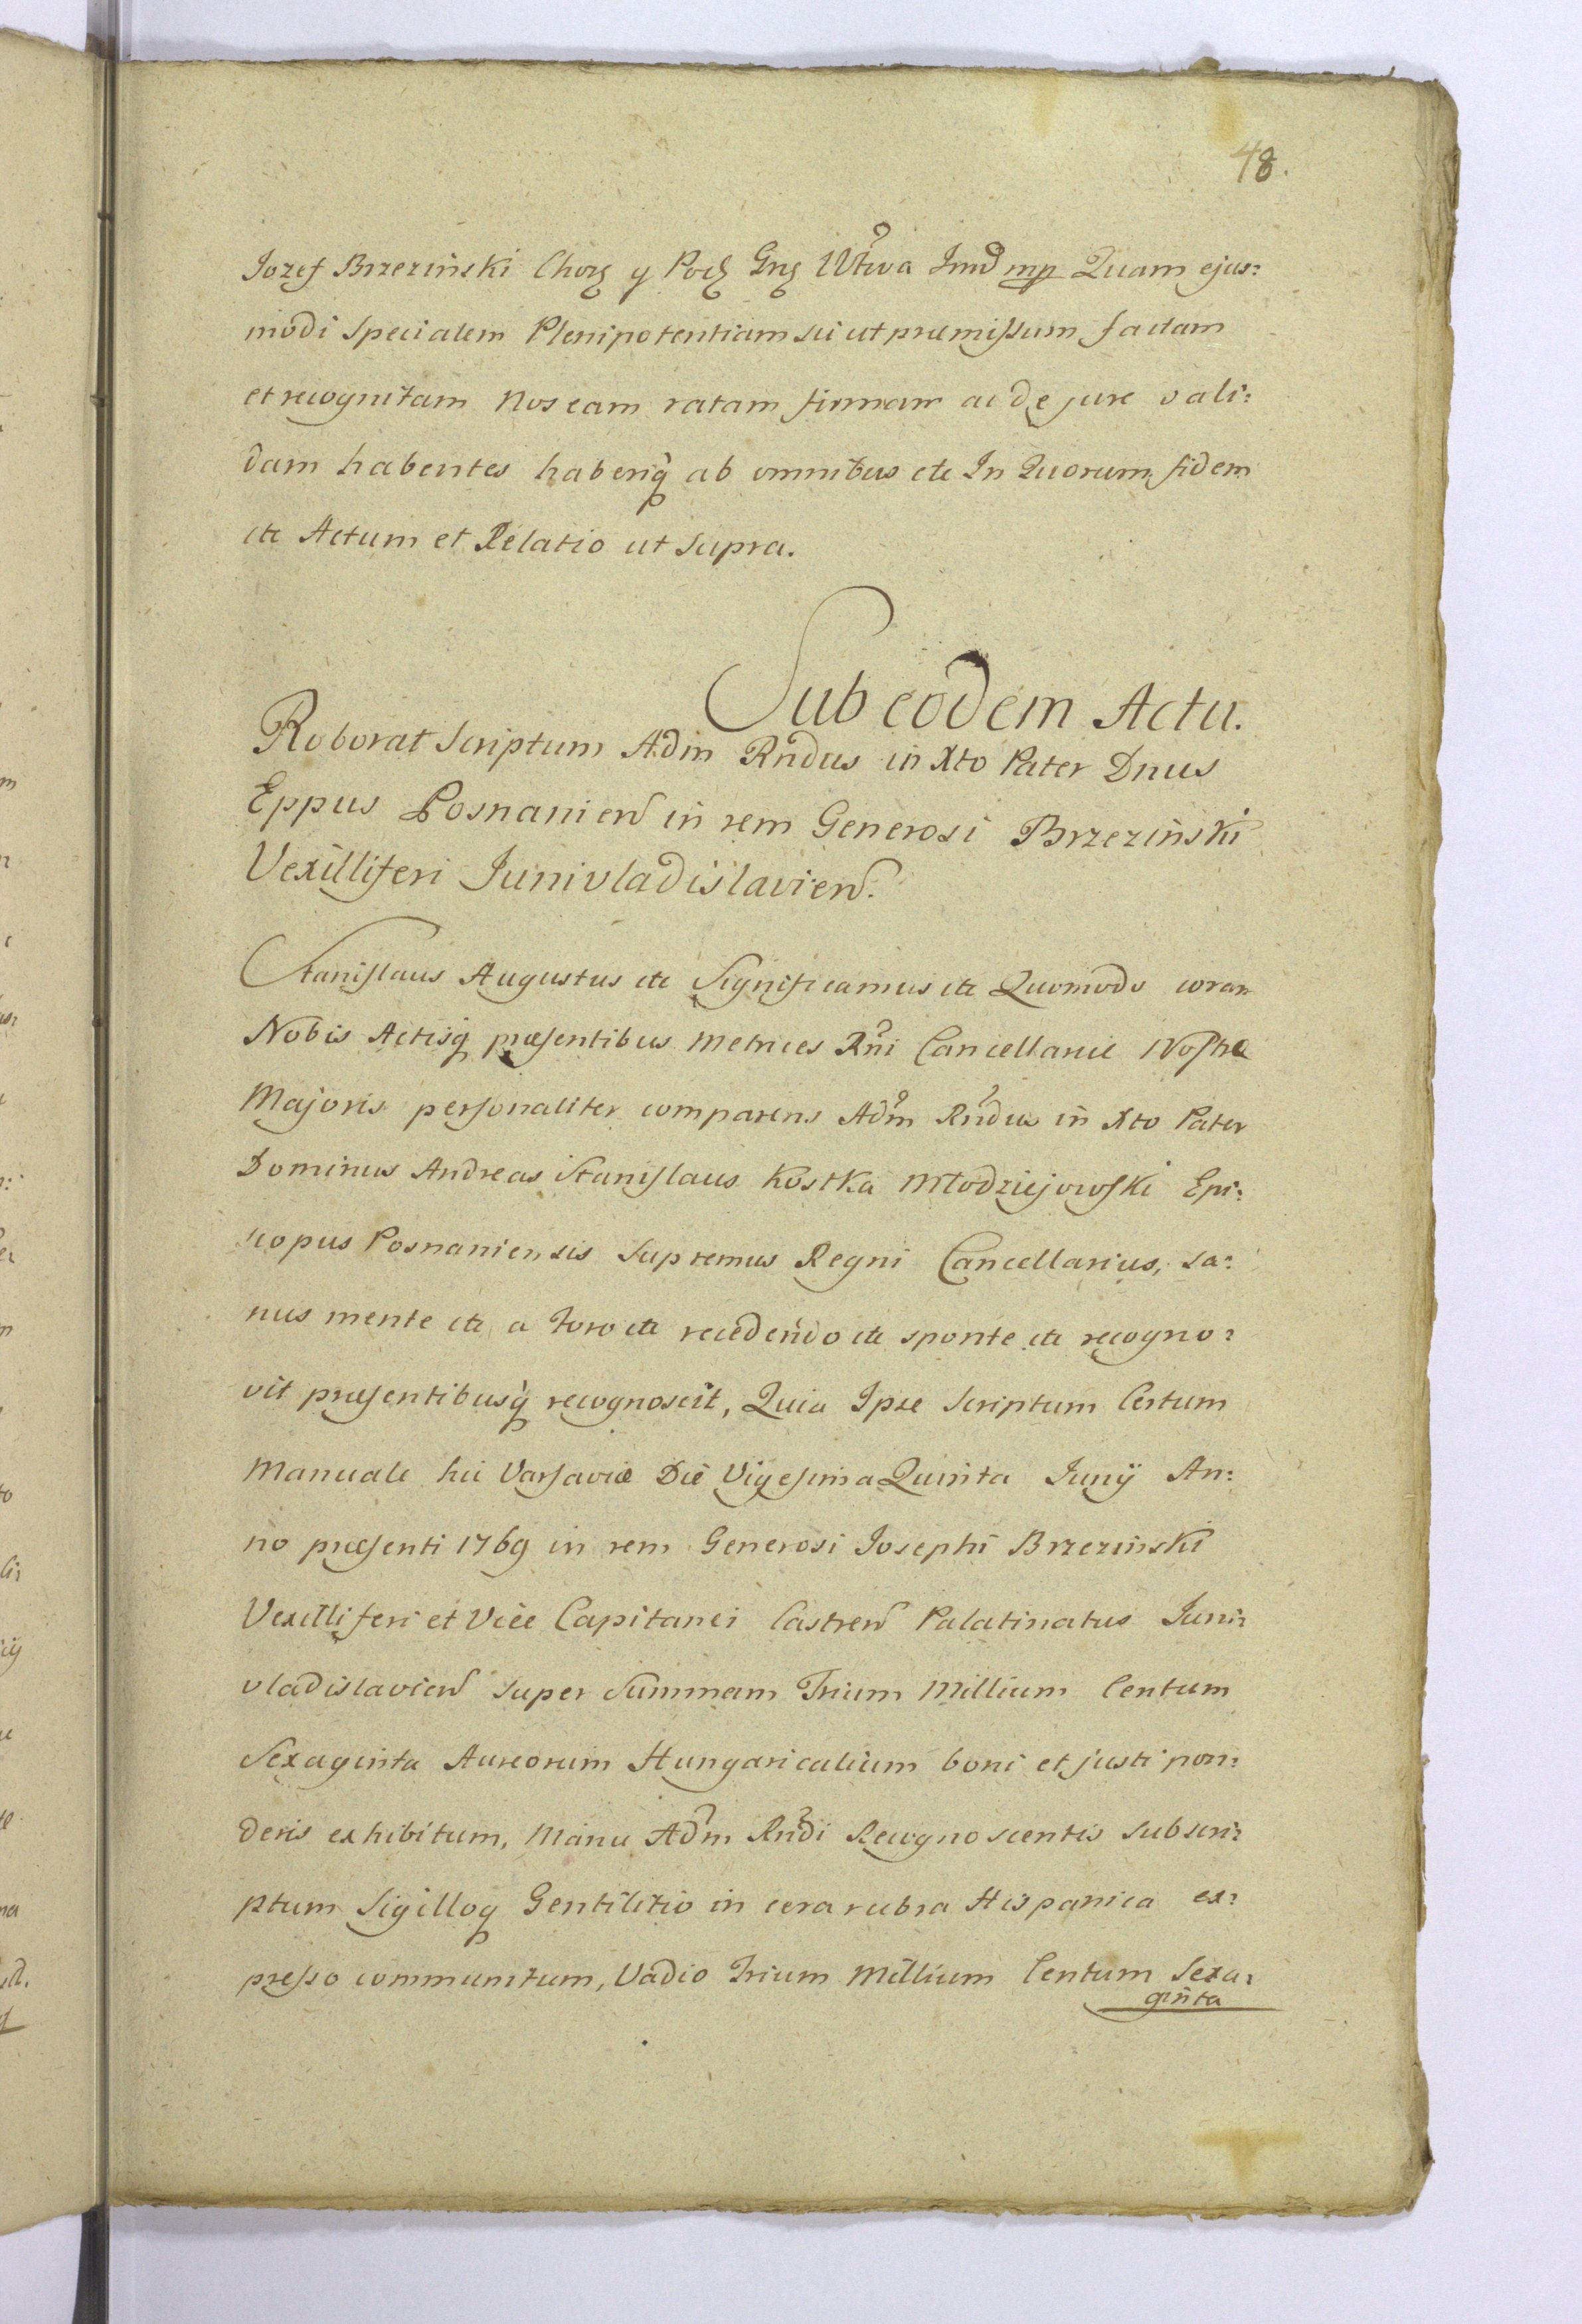 48.
Jozef Brzeziński Chorż y Podż Grż Wtwa Innd mp Quam ejus:
modi specialem Plenipotentiam sic ut præmissum factam
et recognitam Nos eam ratam firmam ac de jure vali:
dam habentes haberiq̃ ab omnibus etc In Quorum fidem
etc Actum et Relatio ut supra.
Sub eodem Actu.
Roborat Scriptum Adm Rndus in Xto Pater Dnus
Eppus Posnanien in rem Generosi Brzeziński
Vexilliferi Junivladislavien.
Stanislaus Augustus etc Significamus etc Quomodo coram
Nobis Actisq̃ præsentibus Metrices Rni Cancellariæ Nostræ
Majoris personaliter comparens Adm Rndus in Xto Pater
Dominus Andreas Stanislaus Kostka Młodziejowski Epi:
scopus Posnaniensis Supremus Regni Cancellarius, sa:
nus mente etc a Foro etc recedendo etc sponte etc recogno:
vit præsentibusq̃ recognoscit, Quia Ipse Scriptum Certum
Manuale hic Varsaviæ Die Vigesima Quinta Junÿ An:
no præsenti 1769 in rem Generosi Josephi Brzeziński
Vexilliferi et Vice Capitanei Castren Palatinatus Juni:
vladislavien super Summam Trium Millium Centum
Sexaginta Aureorum Hungaricalium boni et justi pon:
deris exhibitum, Manu Adm Rndi Recognoscentis subscri:
ptum Sigilloq̃ Gentilitio in cera rubra Hispanica ex:
presso communitum, Vadio Trium Millium Centum Sexa:
ginta